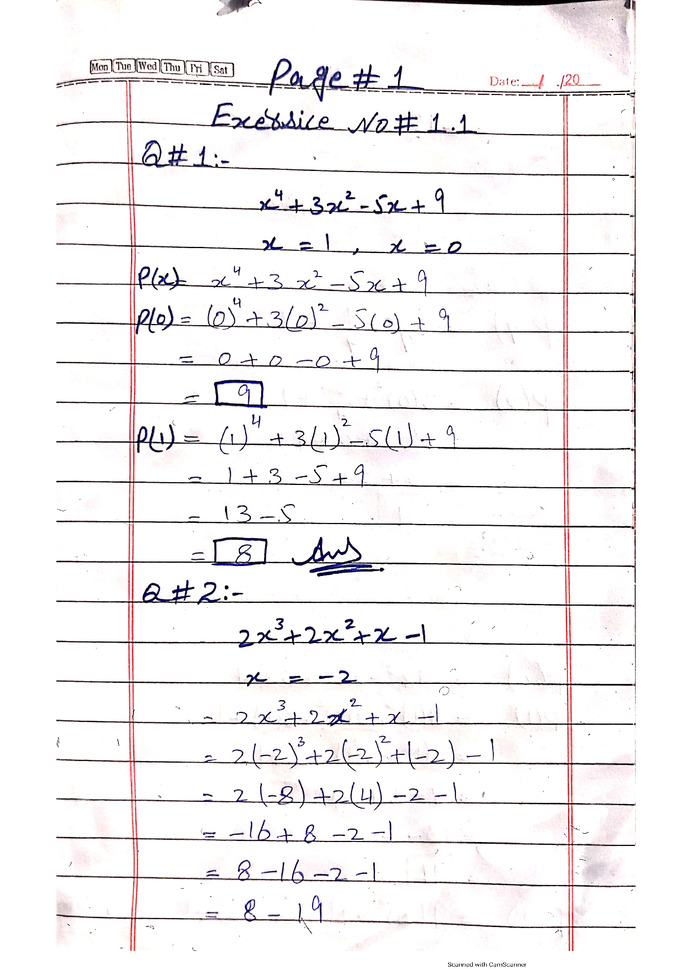 Mon Tue Wed Thu Fri Sat
Page # 1
Date: / /20
Exersice No # 1.1
Q # 1:-
x⁴ + 3x² - 5x + 9
x = 1 , x = 0
P(x) = x⁴ + 3x² - 5x + 9
P(0) = (0)⁴ + 3(0)² - 5(0) + 9
= 0 + 0 - 0 + 9
= 9
P(1) = (1)⁴ + 3(1)² - 5(1) + 9
= 1 + 3 - 5 + 9
= 13 - 5
= 8 Ans
Q # 2:-
2x³ + 2x² + x - 1
x = -2
= 2x³ + 2x² + x - 1
= 2(-2)³ + 2(-2)² + (-2) - 1
= 2(-8) + 2(4) - 2 - 1
= -16 + 8 - 2 - 1
= 8 - 16 - 2 - 1
= 8 - 19
Scanned with CamScanner